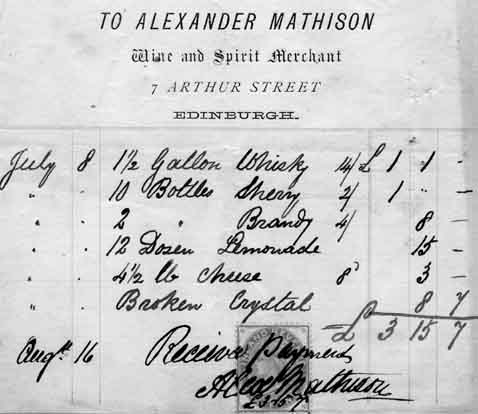 TO ALEXANDER MATHISON
Wine and Spirit Merchant
7 ARTHUR STREET
EDINBURGH.
July 8 1½ Gallon Whisky 14/ £ 1 1 -
" . 10 Bottles Sherry 2/ 1 " -
" . 2 " Brandy 4/ 8 -
" . 12 Dozen Lemonade 15 -
" . 4½ lb Cheese 8ᵈ 3 -
" . Broken Crystal 8 7
£ 3 15 7
Augt 16 Received Payment
Alexr Mathison